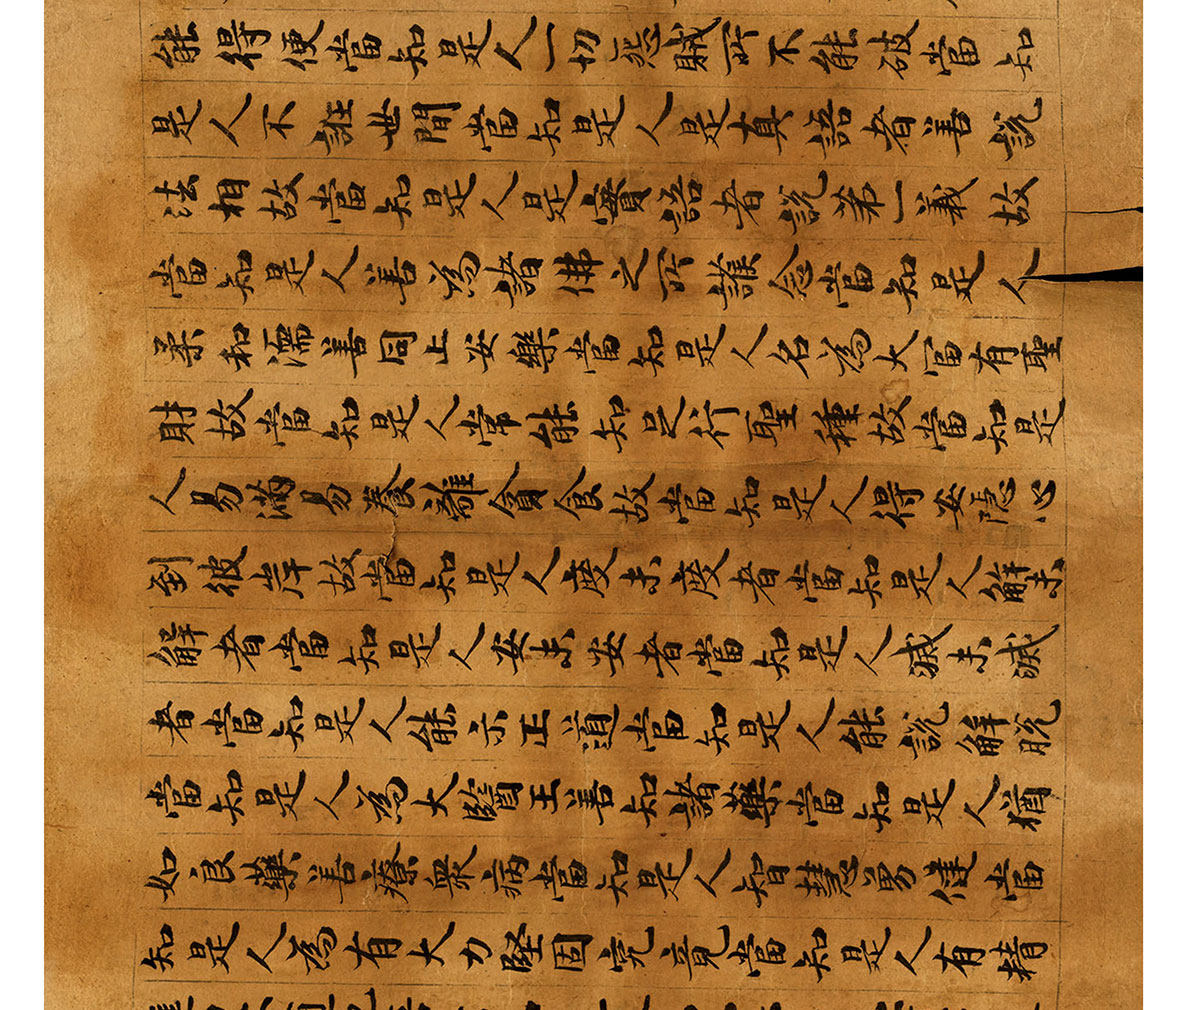 能得便當知是人一切怨賊所不能破當知
是人不誑世間當知是人是真語者善說
法相故當知是人是實語者說第一義故
當知是人善為諸佛之所護念當知是人
柔和濡善同止安樂當知是人名為大富有聖
財故當知是人常能知足行聖種故當知是
人易滿易養離貪食故當知是人得安隱心
到彼岸故當知是人度未度者當知是人解未
解者當知是人安未安者當知是人滅未滅
者當知是人能示正道當知是人能說解脫
當知是人為大醫王善知諸藥當知是人猶
如良藥善療眾病當知是人智慧勇健當
知是人為有大力堅固究竟當知是人有精